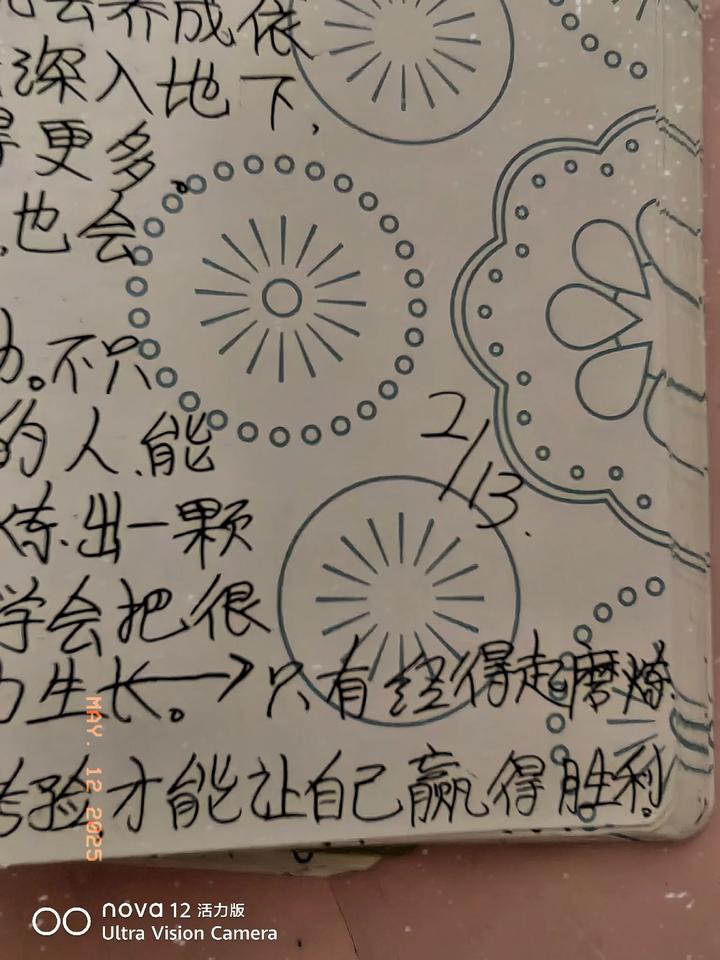 会养成依
深入地下,
更多。
,也会
。不只
的人.能
炼.出一颗
学会把很
力生长。→只有经得起磨炼
考验才能让自己赢得胜利。
2/13.
MAY. 12 2025
nova 12 活力版
Ultra Vision Camera